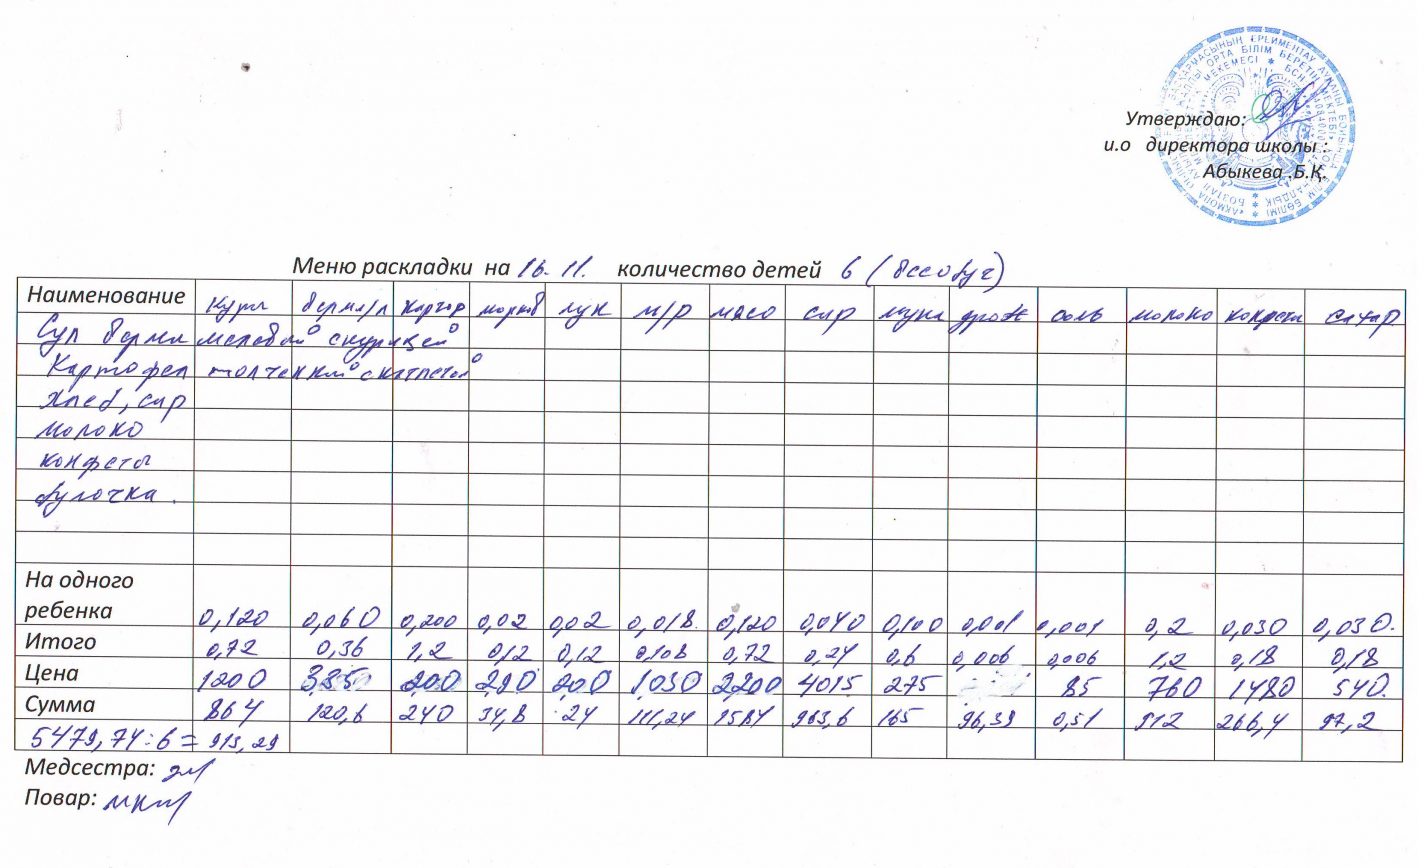 Утверждаю:
и.о директора школы :
Абыкева .Б.Қ.
Меню раскладки на 16. 11. количество детей 6 (
Наименование куры карто морков лук м/р мясо сыр мука дрож соль молоко конфеты сахар
Суп верми
Картофел
Хлеб, сыр
молоко
конфеты
булочка.
На одного
ребенка 0,120 0,060 0,200 0,02 0,02 0,018. 0,120 0,040 0,100 0,001 0,001 0,2 0,030 0,030.
Итого 0,72 0,36 1,2 0,12 0,12 0,108 0,72 0,24 0,6 0,006 0,006 1,2 0,18 0,18
Цена 1200 200 290 200 1030 2200 4015 275 85 760 1480 540.
Сумма 864 120,6 240 34,8 24 111,24 1584 963,6 165 96,39 0,51 912 266,4 97,2
5479,74:6= 913,29
Медсестра:
Повар: